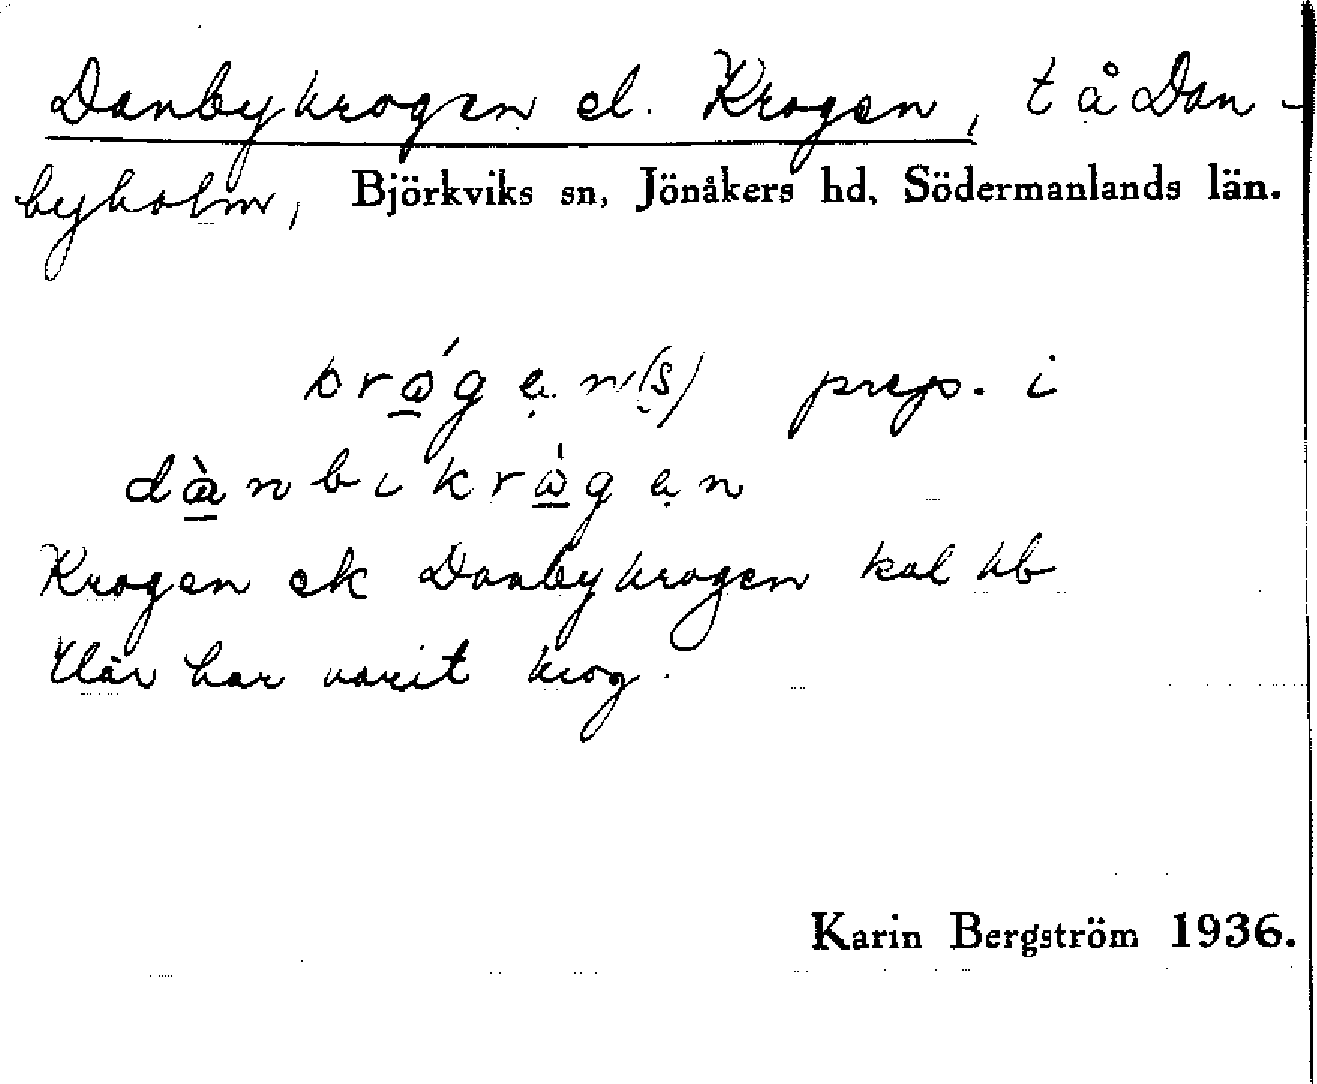 Danbykrogen el. Krogen, t å Dan-
byholm, Björkviks sn, Jönåkers hd, Södermanlands län.
krǿgen(s) prep. i
dànbikrǿgen
Krogen ek Danbykrogen kal hb
Där har varit krog.
Karin Bergström 1936.